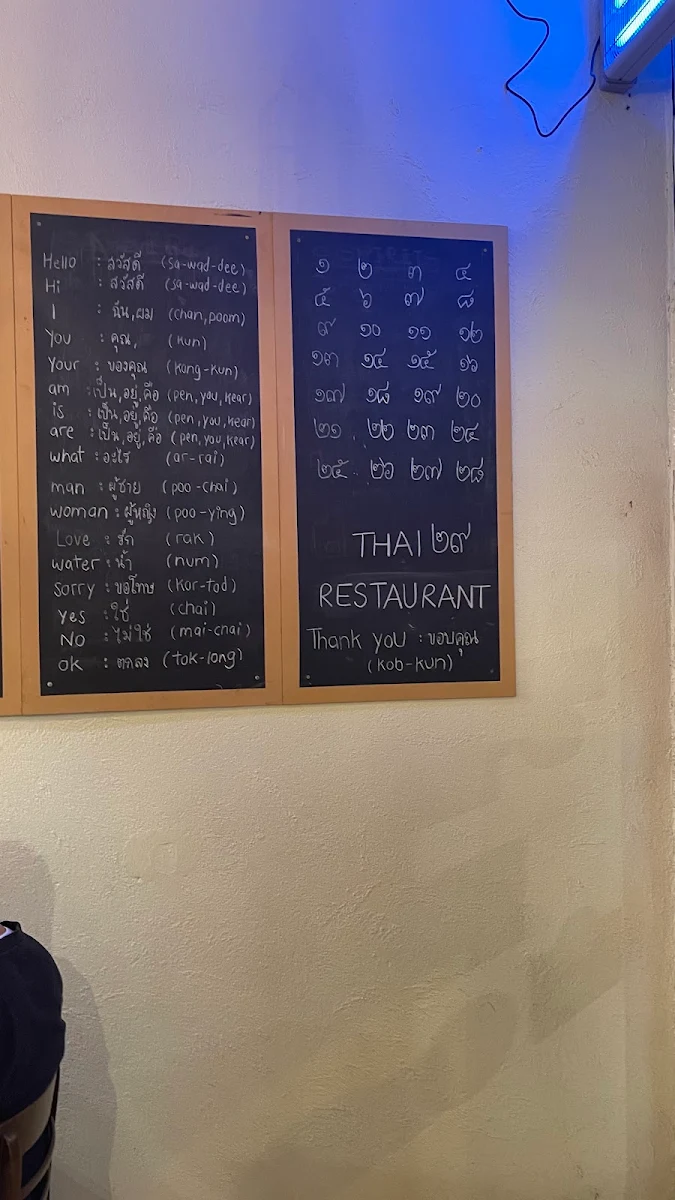 Hello : สวัสดี (sa-wad-dee)
Hi : สวัสดี (sa-wad-dee)
I : ฉัน,ผม (chan,poom)
You : คุณ, (kun)
Your : ของคุณ (kong-kun)
am : เป็น,อยู่,คือ (pen,you,kear)
is : เป็น,อยู่,คือ (pen,you,kear)
are : เป็น,อยู่,คือ (pen,you,kear)
what : อะไร (ar-rai)
man : ผู้ชาย (poo-chai)
woman : ผู้หญิง (poo-ying)
Love : รัก (rak)
water : น้ำ (num)
Sorry : ขอโทษ (kor-tod)
Yes : ใช่ (chai)
No : ไม่ใช่ (mai-chai)
ok : ตกลง (tok-long)
๑ ๒ ๓ ๔
๕ ๖ ๗ ๘
๙ ๑๐ ๑๑ ๑๒
๑๓ ๑๔ ๑๕ ๑๖
๑๗ ๑๘ ๑๙ ๒๐
๒๑ ๒๒ ๒๓ ๒๔
๒๕ ๒๖ ๒๗ ๒๘
THAI ๒๙
RESTAURANT
Thank you : ขอบคุณ
(kob-kun)